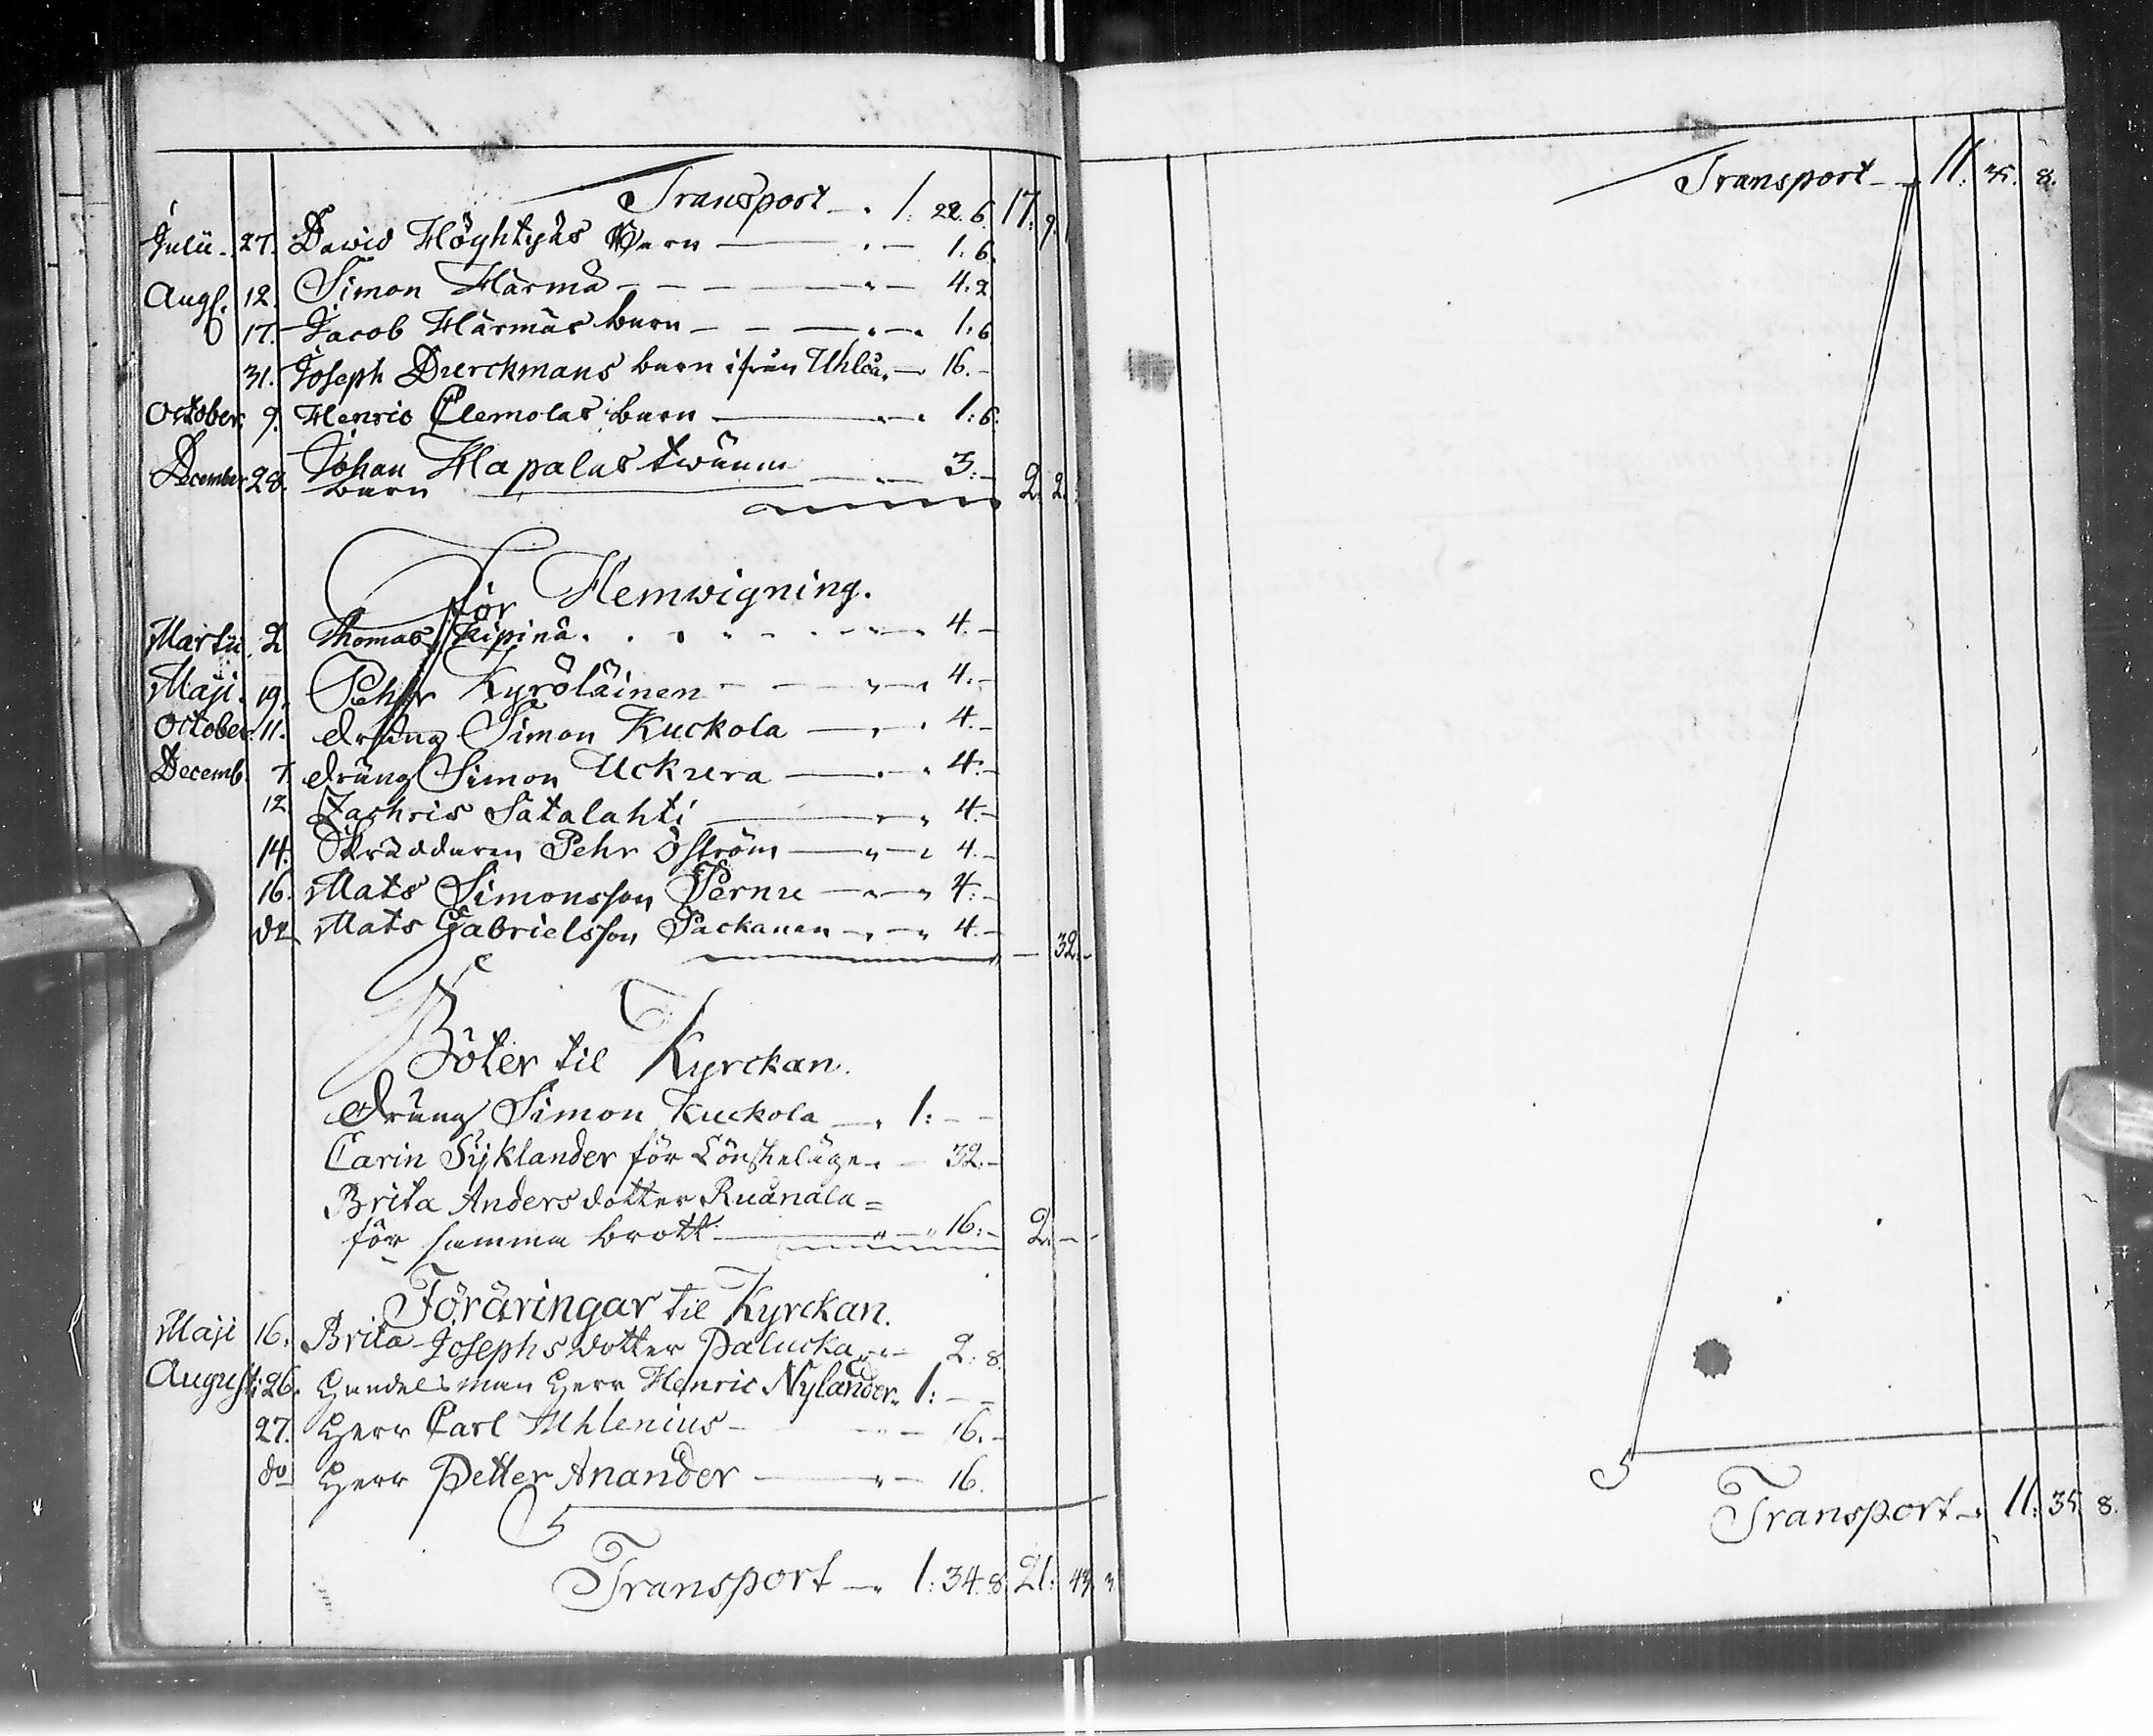 Transport 1: 22. 6. 17. 9.
Julii 27. David Höyhtyäs Barn 1. 6.
Aug. 12. Simon Härmä 4. 2
17. Jacob Härmäs barn 1. 6
31. Joseph Dierckmans barn ifrån Uhleå. 16.
October 9. Henric Clemolas barn 1: 6.
December 28. Johan Hapalas twänne 3:
barn 2: 2.
För Hemwigning.
Martii 2 Thomas Kipinä 4.
Maji 19. Pehr Kyröläinen 4.
October 11. dräng Simon Kuckola 4.
Decemb. 7. dräng Simon Uckura 4.
12 Zachris Satalahti 4.
14. Skräddaren Pehr Öström 4.
16. Mats Simonsson Pernu 4.
do Mats Gabrielsson Packanen 4. 32.
Böter til Kyrckan.
dräng Simon Kuckola 1:
Carin Sijklander för Lönskeläge 32.
Brita Andersdotter Ruånala =
för samma brott 16: 2.
Föräringar til Kyrckan.
Maji 16. Brita Josephsdotter Palucka 2: 8.
Augusti 26. Handelsman Herr Henric Nylander 1:
27. Herr Carl Uhlenius 16.
do Herr Petter Anander 16.
Transport 1: 34. 8. 21: 43. 3
Transport 11: 35. 8.
Transport 11: 35. 8.